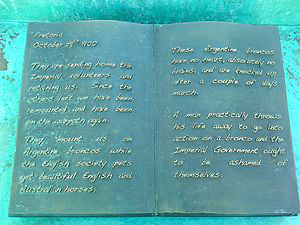 "Pretoria
October 7th 1900
They are sending home the
Imperial volunteers and
retaining us. Since the
others left we have been
remounted and have been
on the warpath again.
They mount us on
Argentine broncos while
the English society pets
get beautiful English and
Australian horses.
These Argentine broncos
have no heart, absolutely no
brains, and are knocked up
after a couple of days
march.
A man practically throws
his life away to go into
action on a bronco and the
Imperial Government ought
to be ashamed of
themselves.